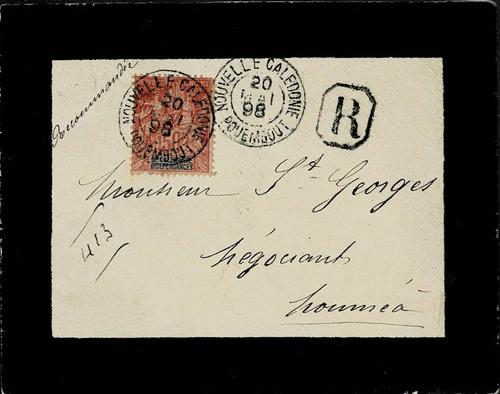 Recommandée
NOUVELLE CALEDONIE
20
MAI
98
POUEMBOUT
NOUVELLE CALEDONIE
20
MAI
98
POUEMBOUT
DEPENDANCES
R
Monsieur St Georges
négociant
Nouméa
413